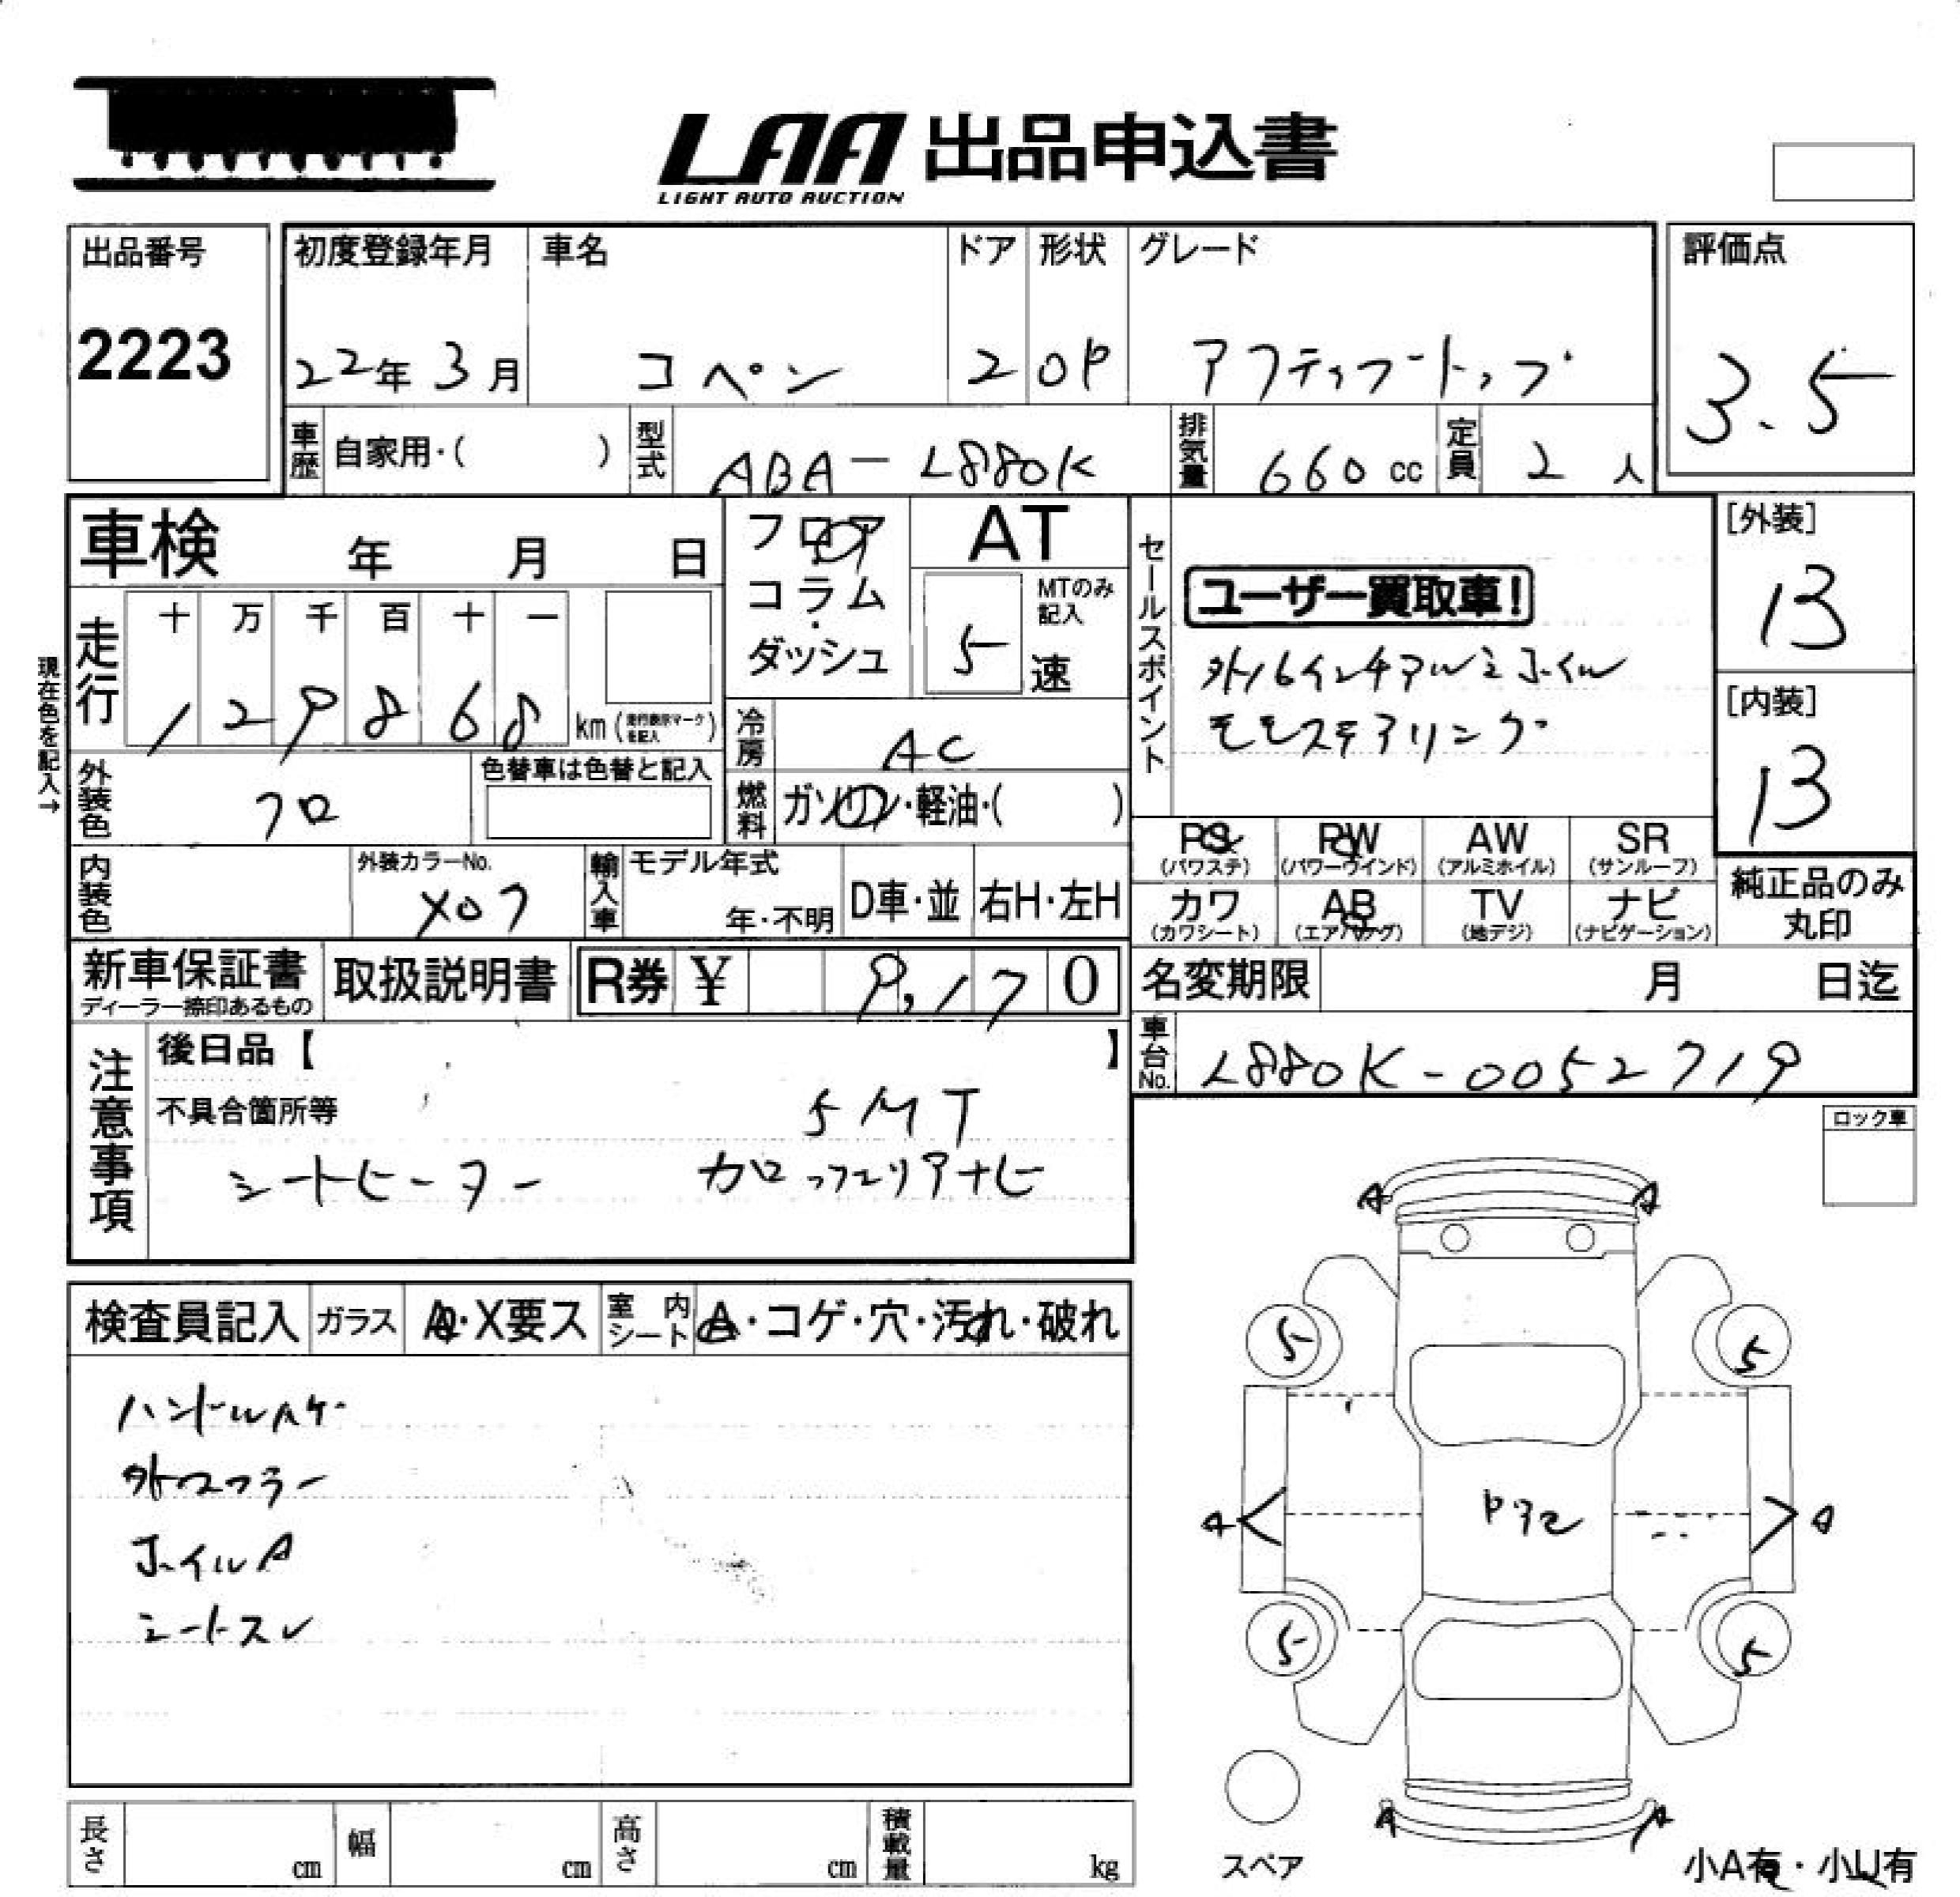 LAA 出品申込書
LIGHT AUTO AUCTION
出品番号
2223
初度登録年月
22年 3月
車名
コペン
ドア
2
形状
OP
グレード
アクティブートップ
評価点
3.5
車歴 自家用・( )
型式 ABA-L880K
排気量 660 cc
定員 2 人
車検 年 月 日
フロア
コラム
ダッシュ
AT
MTのみ記入
5 速
セールスポイント
ユーザー買取車!
外16インチアルミホイル
モモステアリング
[外装]
13
[内装]
13
現在色を記入→
走行 十 万 千 百 十 一
1 2 9 8 6 8 km (走行表示マークを記入)
冷房 AC
燃料 ガソリン・軽油・( )
外装色 クロ
色替車は色替と記入
内装色
外装カラーNo.
X07
輸入車 モデル年式
年・不明
D車・並
右H・左H
PS (パワステ)
PW (パワーウインド)
AW (アルミホイル)
SR (サンルーフ)
カワ (カワシート)
AB (エアバッグ)
TV (地デジ)
ナビ (ナビゲーション)
純正品のみ丸印
新車保証書
ディーラー捺印あるもの
取扱説明書
R券 ¥ 9,170
名変期限 月 日迄
車台No. L880K-0052719
注意事項
後日品【 】
不具合箇所等
5MT
シートヒーター カロッツェリアナビ
ロック車
検査員記入
ガラス A・X要ス
室内シート A・コゲ・穴・汚れ・破れ
ハンドルAケ
外マフラー
ホイルA
シートスレ
A A
5 5
A A
5 5
A A
スペア
小A有・小U有
長さ cm
幅 cm
高さ cm
積載量 kg